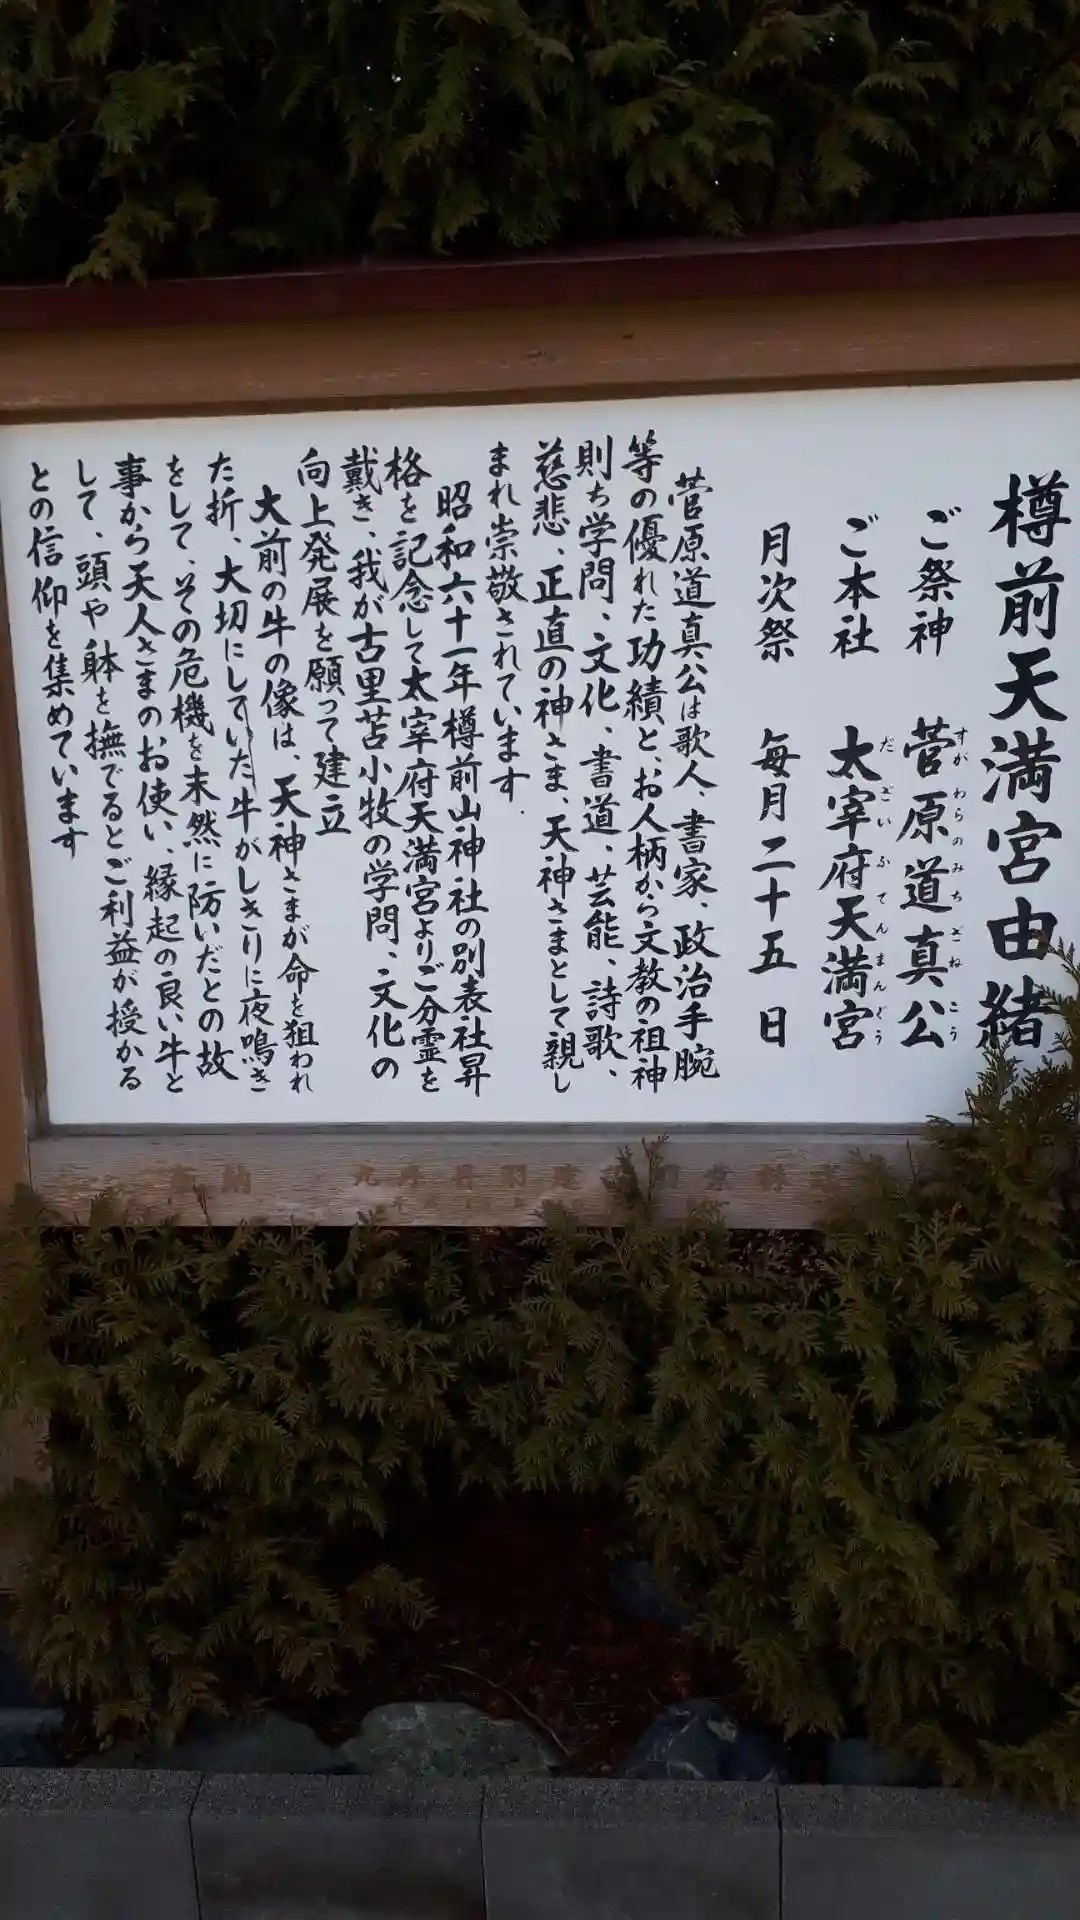 樽前天満宮由緒
ご祭神 菅原道真公
すがわらのみちざねこう
ご本社 太宰府天満宮
だざいふてんまんぐう
月次祭 毎月二十五日
菅原道真公は歌人、書家、政治手腕
等の優れた功績と、お人柄から文教の祖神
則ち学問、文化、書道、芸能、詩歌、
慈悲、正直の神さま、天神さまとして親し
まれ崇敬されています.
昭和六十一年樽前山神社の別表社昇
格を記念して太宰府天満宮よりご分霊を
戴き、我が古里苫小牧の学問、文化の
向上発展を願って建立
大前の牛の像は、天神さまが命を狙われ
た折、大切にしていた牛がしきりに夜鳴き
をして、その危機を未然に防いだとの故
事から天人さまのお使い、縁起の良い牛と
して、頭や躰を撫でるとご利益が授かる
との信仰を集めています